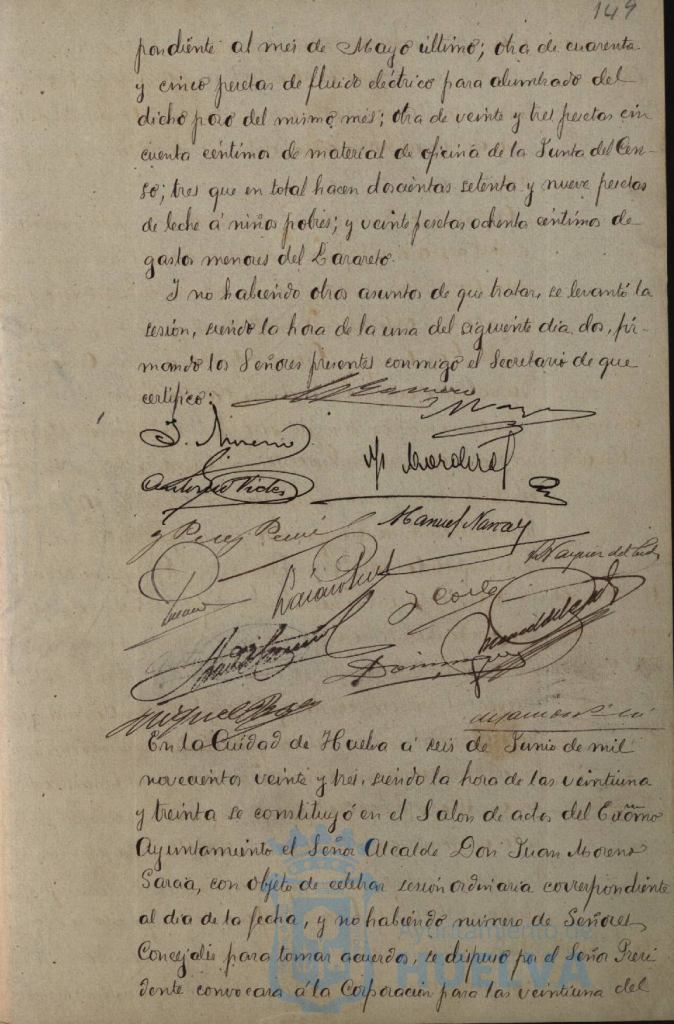 149
pondiente al mes de Mayo último; otra de cuarenta
y cinco pesetas de fluido eléctrico para alumbrado del
dicho paso del mismo mes; otra de veinte y tres pesetas cin
cuenta céntimos de material de oficina de la Junta del Cen-
so; tres que en total hacen doscientas setenta y nueve pesetas
de leche á niños pobres; y veinte pesetas ochenta céntimos de
gastos menores del Lazareto.
Y no habiendo otros asuntos de que tratar, se levantó la
sesión, siendo la hora de la una del siguiente dia dos, fir-
mando los Señores presentes conmigo el Secretario de que
certifico:
J. Moreno
Antonio Vides
y Perez
Manuel Navar
Vazquez del
J Corte
Dominguez
Miguel
En la Ciudad de Huelva á seis de Junio de mil
novecientos veinte y tres, siendo la hora de las veintiuna
y treinta se constituyó en el Salon de actos del Excmo
Ayuntamiento el Señor Alcalde Don Juan Moreno
Garcia, con objeto de celebrar sesión ordinaria correspondiente
al dia de la fecha, y no habiendo número de Señores
Concejales para tomar acuerdo, se dispuso por el Señor Presi
dente convocara á la Corporación para las veintiuna del
Ayuntamiento
HUELVA